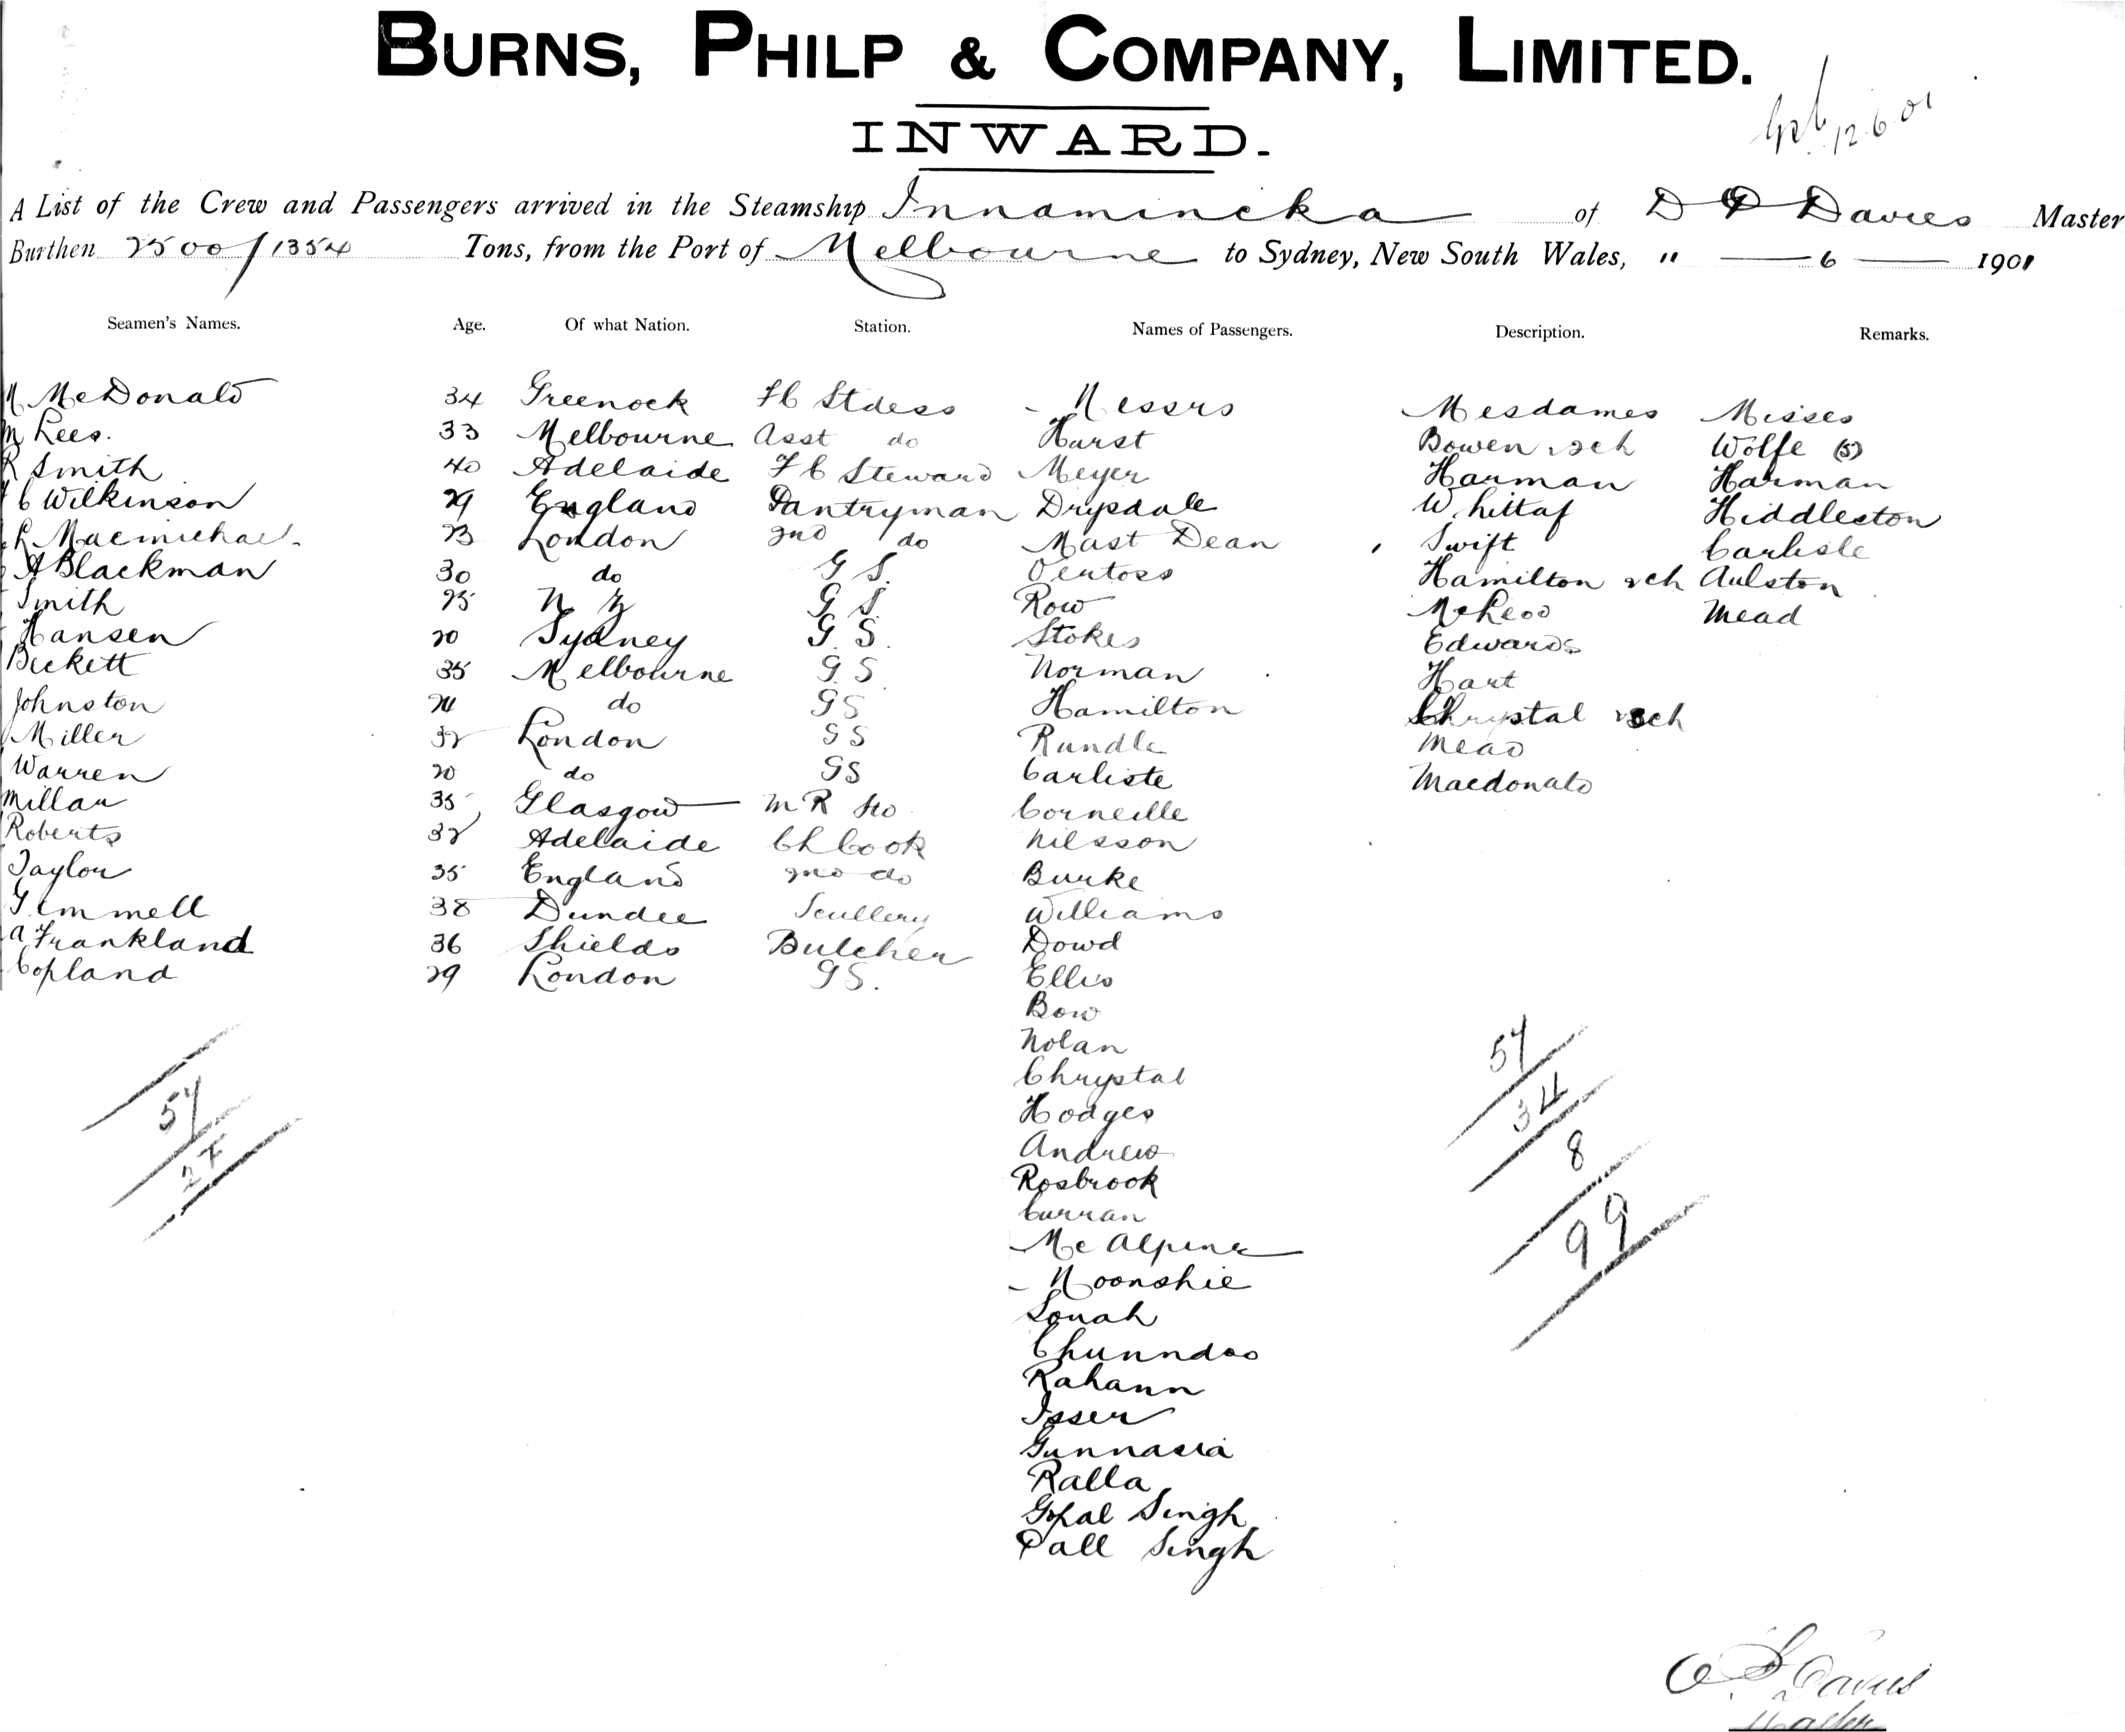 BURNS, PHILP & COMPANY, LIMITED.
INWARD.
12.6.01
A List of the Crew and Passengers arrived in the Steamship Innamincka of D P Davies Master
Burthen 2500/1354 Tons, from the Port of Melbourne to Sydney, New South Wales, " — 6 — 1901
Seamen's Names. Age. Of what Nation. Station. Names of Passengers. Description. Remarks.
McDonald 34 Greenock F C Stdess - Messrs Mesdames Misses
M Lees. 33 Melbourne Asst do Hurst Bowen 2ch Wolfe (5)
R Smith 40 Adelaide F C Steward Meyer Harman Harman
C Wilkinson 29 England Pantryman Drysdale Whittaf Hiddleston
Macmichael 23 London 2nd do Mast Dean Swift Carlisle
A Blackman 30 do G S. Ventoss Hamilton 2ch Aulston
Smith 25 N Z G S. Row McLeod Mead
Hansen 20 Sydney G. S. Stokes Edwards
Beckett 35 Melbourne G. S Norman Hart
Johnston 24 do GS Hamilton Chrystal 3ch
Miller 32 London GS Rundle Mead
Warren 20 do GS Carliste Macdonald
Millar 35 Glasgow M R Std Corneille
Roberts 32 Adelaide Ch Cook Nilsson
Taylor 35 England 2nd do Burke
Gemmell 38 Dundee Scullery Williams
A Frankland 36 Shields Butcher Dowd
Copland 29 London GS. Ellis
Bow
Nolan
Chrystal
Hodges
Andrew
Rosbrook
Curran
McAlpine
- Moonshie
Sonah
Chunndoo
Rahann
Isser
Gunnasia
Ralla
Gopal Singh
Pall Singh
57
27
57
34
8
99
Davies
Master